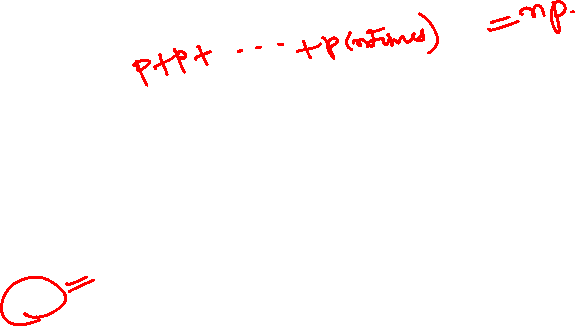 p+p+ ... +p (n times) = np.
=